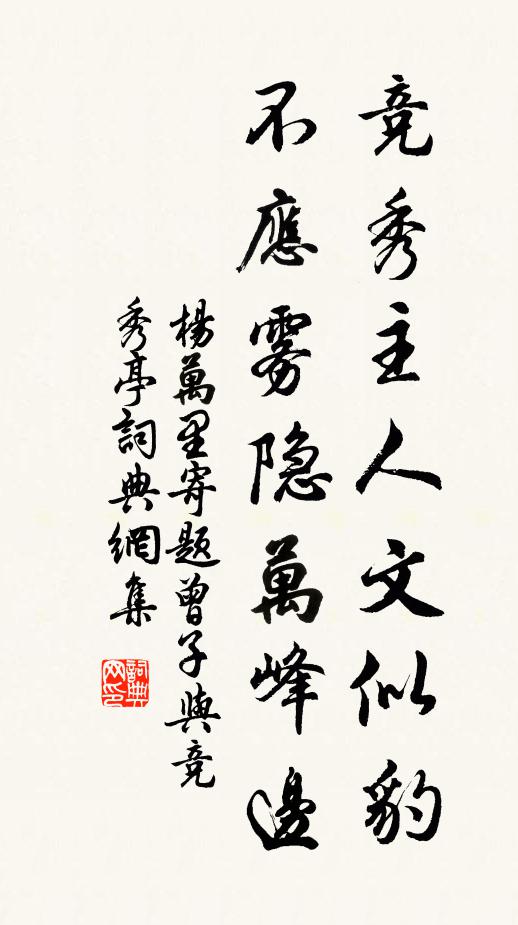 竞秀主人文似豹
不應雾隐萬峰邊
楊萬里寄题曾子與竞
秀亭詞典網集
詞典
网印